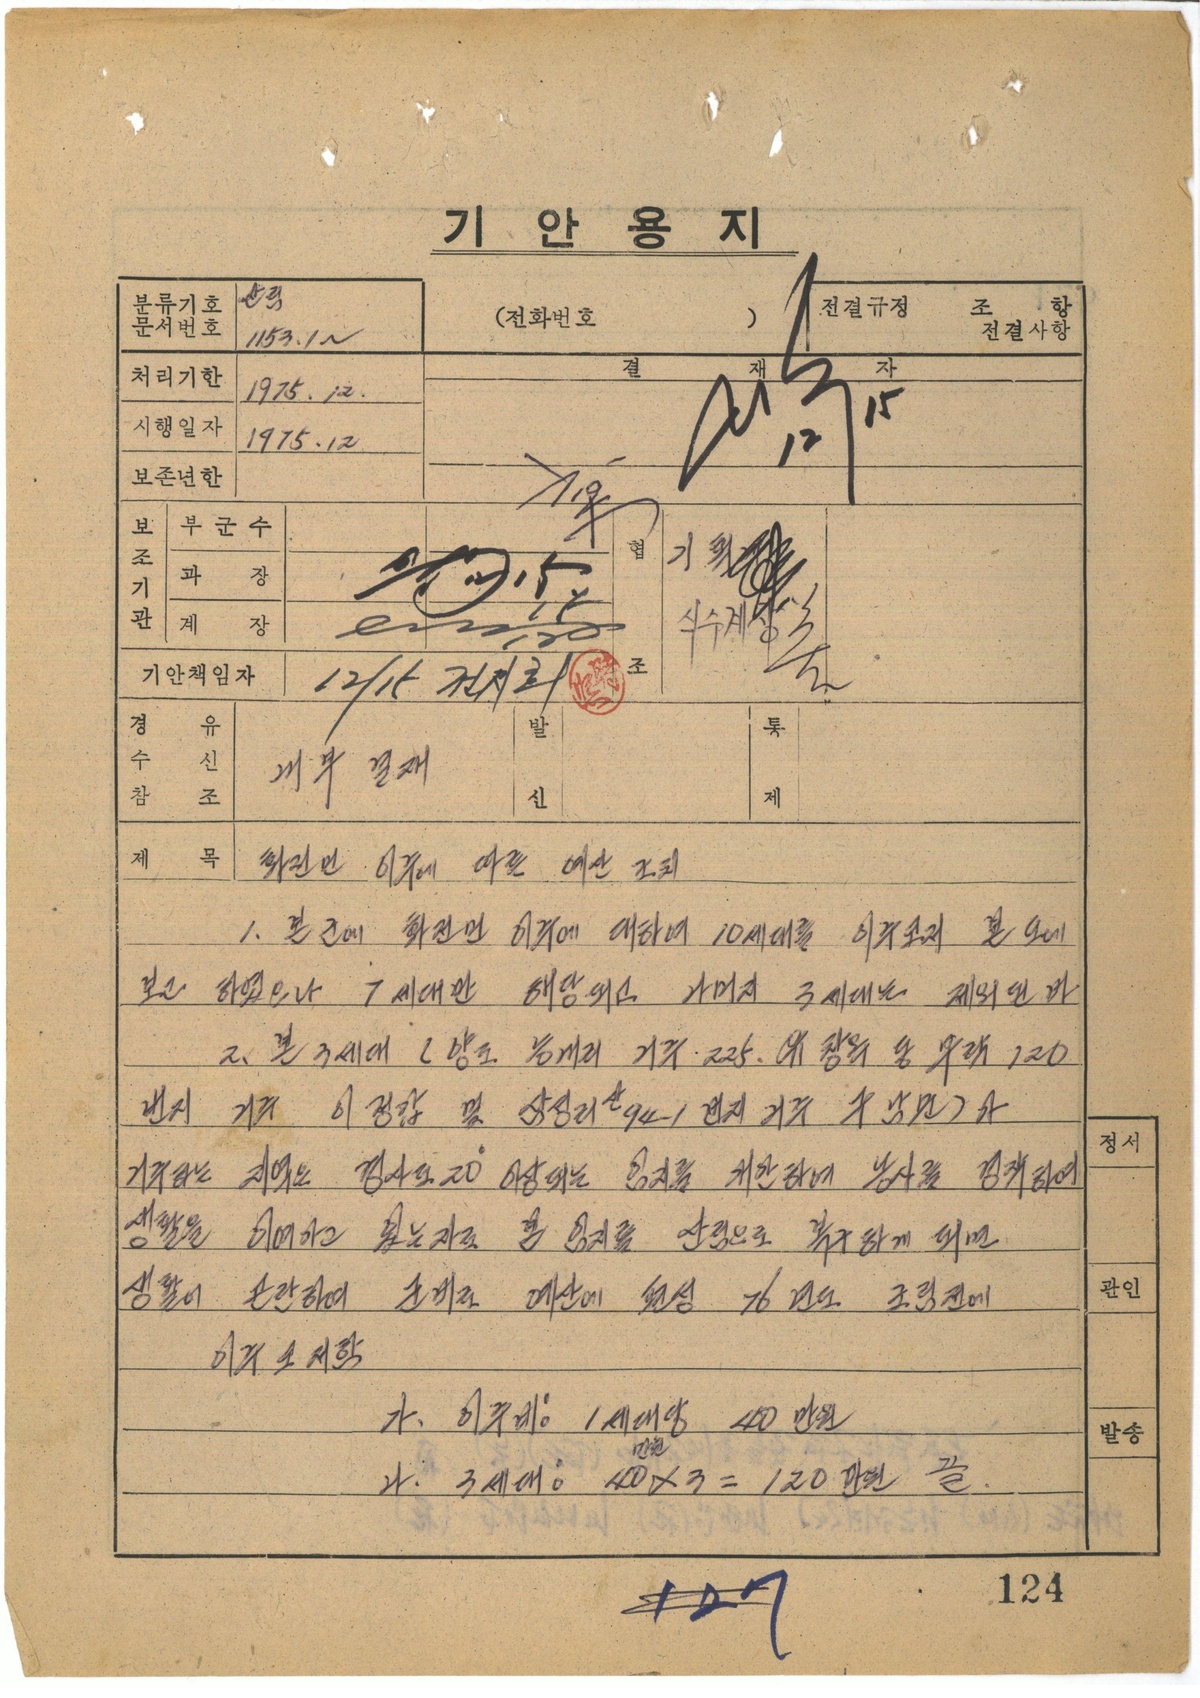 기 안 용 지
분류기호
문서번호
산림
1153.1~
(전화번호 )
전결규정 조 항
전결사항
처리기한
1975. 12.
결 재 자
시행일자
1975. 12
12 15
보존년한
보조기관
부 군 수
과 장
15
계 장
협조
기획
식수계장
기안책임자
12/15
경 유
수 신
참 조
내부 결재
발신
통제
제 목
화전민 이주에 따른 예산 조치
1. 본 군에 화전민 이주에 대하여 10세대를 이주조치 본 도에
보고 하였으나 7세대만 해당되고 나머지 3세대는 제외된 바
2. 본 3세대 (양도 능내리 거주 225. 동 부락 120
번지 거주 이정암 및 삼성리 산 94-1 번지 거주 )가
거주하는 지역은 경사도 20° 이상되는 임지를 개간하여 농사를 경작하여
생활을 이여하고 있는자로 본 임지를 산림으로 복구하게 되면
생활이 곤란하여 군비로 예산에 편성 76년도 조림전에
이주 조치함
가. 이주비: 1세대당 40만원
나. 3세대: 40만원×3=120만원 끝.
정서
관인
발송
127
124